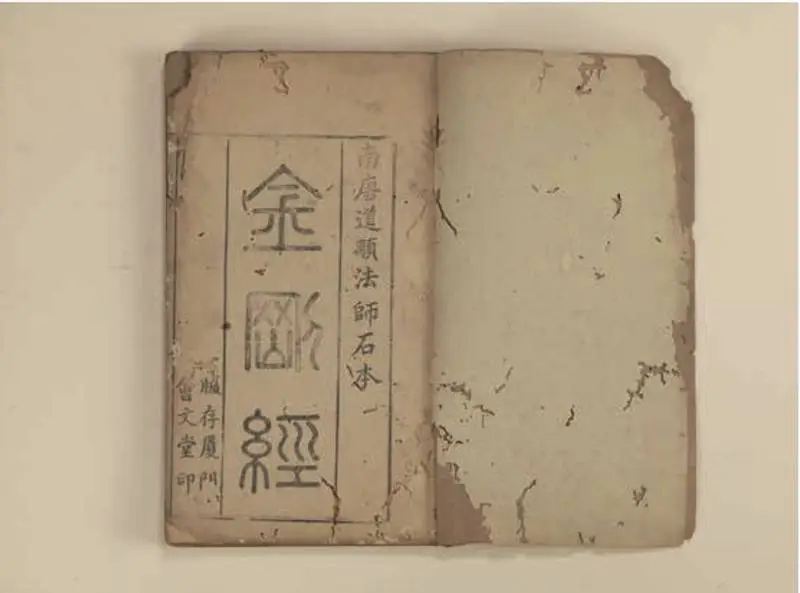 南唐道顒法師石本
金剛經
板存廈門
會文堂印